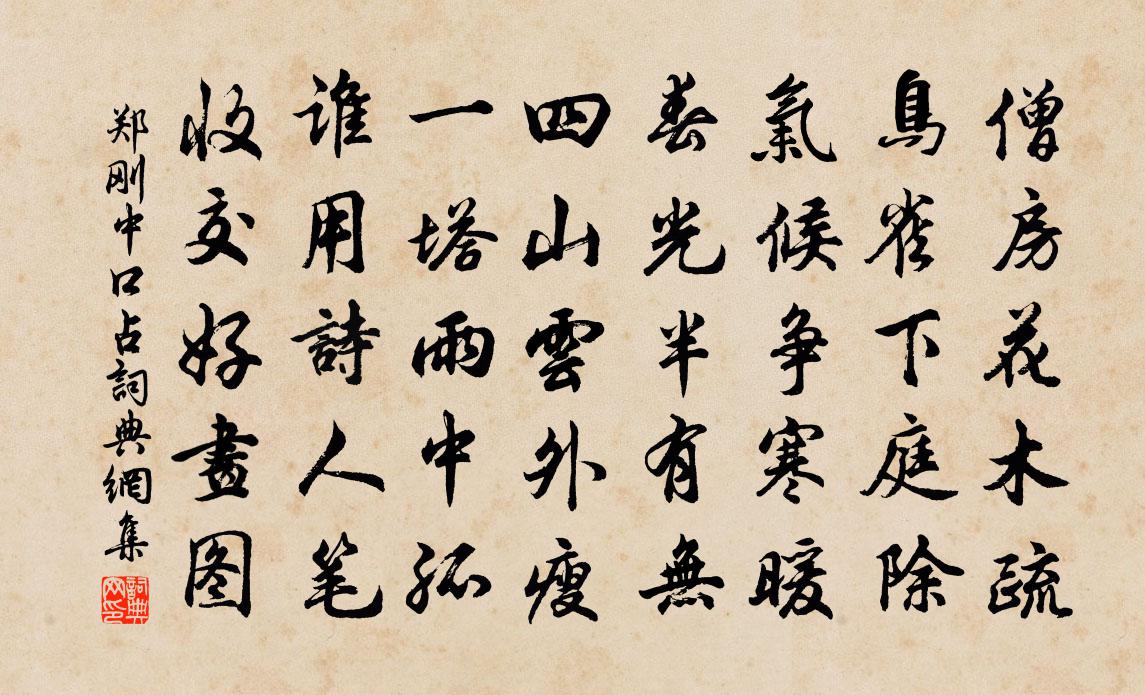 僧房花木疏
鳥雀下庭除
氣候爭寒暖
春光半有無
四山雲外瘦
一塔雨中孤
誰用詩人笔
收交好畫图
郑刚中口占詞典網集
詞典网印